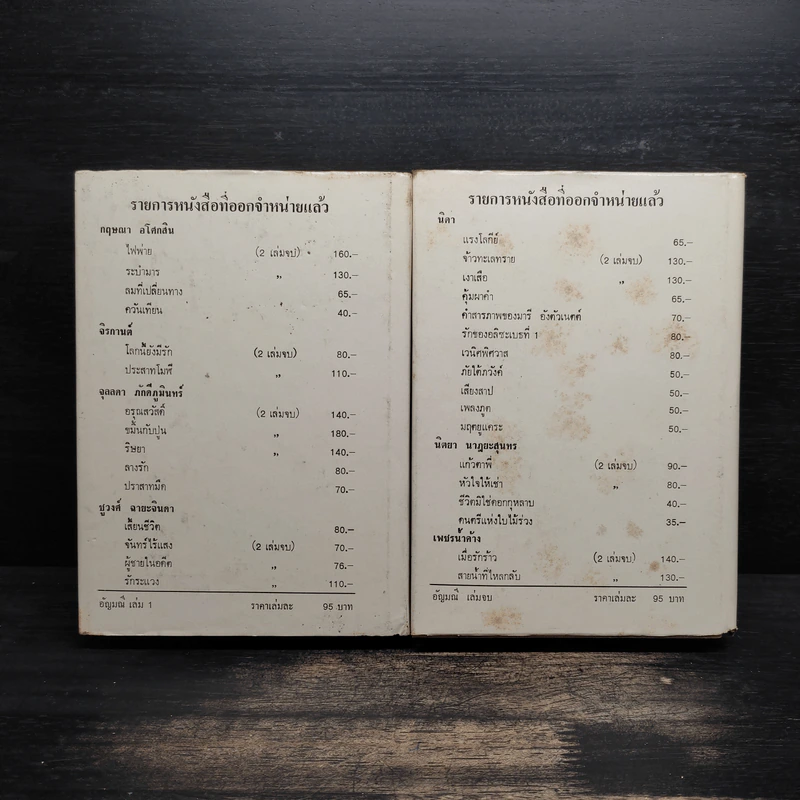 รายการหนังสือที่ออกจำหน่ายแล้ว
กฤษณา อโศกสิน
ไฟพ่าย (2 เล่มจบ) 160.—
ระบำมาร ,, 130.—
ลมที่เปลี่ยนทาง 65.—
ควันเทียน 40.—
จิรกานต์
โลกนี้ยังมีรัก (2 เล่มจบ) 80.—
ประสาทไมฟี ,, 110.—
จุลลดา ภักดีภูมินทร์
อรุณสวัสดิ์ (2 เล่มจบ) 140.—
ขมิ้นกับปูน ,, 180.—
ริษยา ,, 140.—
ลางรัก 80.—
ปราสาทมืด 70.—
ชูวงศ์ ฉายะจินดา
เสี้ยนชีวิต 80.—
จันทร์ไร้แสง (2 เล่มจบ) 70.—
ผู้ชายในอดีต ,, 76.—
รักระแวง ,, 110.—
อัญมณี เล่ม 1 ราคาเล่มละ 95 บาท
รายการหนังสือที่ออกจำหน่ายแล้ว
นิดา
แรงโลกีย์ 65.—
จ้าวทะเลทราย (2 เล่มจบ) 130.—
เงาเสือ ,, 130.—
คุ้มผาคำ 65.—
คำสารภาพของมารี อังตัวเนตต์ 70.—
รักของอลิซะเบธที่ 1 80.—
เวนิศพิศวาส 80.—
ภัยใต้ภวังค์ 50.—
เสียงสาป 50.—
เพลงภูต 50.—
มฤตยูแคระ 50.—
นิตยา นาฎยะสุนทร
แก้วตาพี่ (2 เล่มจบ) 90.—
หัวใจให้เช่า ,, 80.—
ชีวิตมิใช่ดอกกุหลาบ 40.—
ดนตรีแห่งใบไม้ร่วง 35.—
เพชรน้ำค้าง
เมื่อรักร้าว (2 เล่มจบ) 140.—
สายน้ำที่ไหลกลับ ,, 130.—
อัญมณี เล่มจบ ราคาเล่มละ 95 บาท